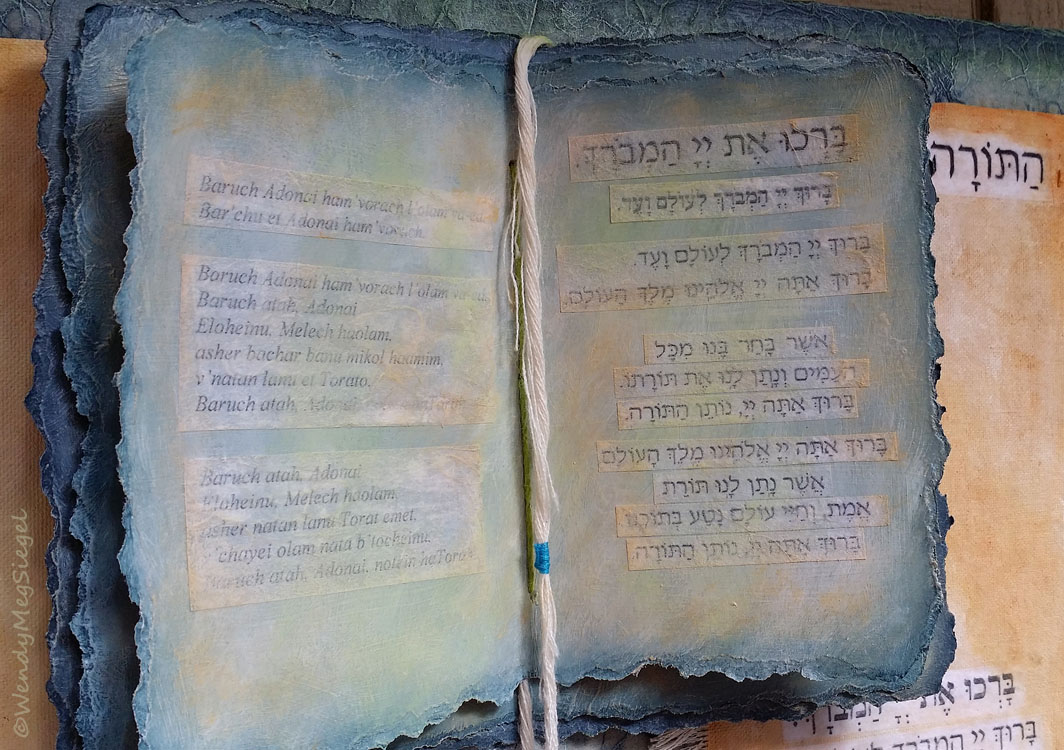 Baruch Adonai ham'vorach l'olam va-ed.
Bar'chu et Adonai ham'vorach.
Baruch Adonai ham'vorach l'olam va-ed.
Baruch atah, Adonai
Eloheinu, Melech haolam,
asher bachar banu mikol haamim,
v'natan lanu et Torato.
Baruch atah, Adonai,
Baruch atah, Adonai
Eloheinu, Melech haolam,
asher natan lanu Torat emet,
v'chayei olam nata b'tocheinu.
Baruch atah, Adonai, notein haTorah.
בָּרְכוּ אֶת יְיָ הַמְבֹרָךְ.
בָּרוּךְ יְיָ הַמְבֹרָךְ לְעוֹלָם וָעֶד.
בָּרוּךְ יְיָ הַמְבֹרָךְ לְעוֹלָם וָעֶד.
בָּרוּךְ אַתָּה יְיָ אֱלֹהֵינוּ מֶלֶךְ הָעוֹלָם,
אֲשֶׁר בָּחַר בָּנוּ מִכָּל
הָעַמִּים וְנָתַן לָנוּ אֶת תּוֹרָתוֹ.
בָּרוּךְ אַתָּה יְיָ, נוֹתֵן הַתּוֹרָה.
בָּרוּךְ אַתָּה יְיָ אֱלֹהֵינוּ מֶלֶךְ הָעוֹלָם
אֲשֶׁר נָתַן לָנוּ תּוֹרַת
אֱמֶת, וְחַיֵּי עוֹלָם נָטַע בְּתוֹכֵנוּ
בָּרוּךְ אַתָּה יְיָ, נוֹתֵן הַתּוֹרָה.
הַתּוֹרָה
בָּרְכוּ אֶת יְיָ הַמְבֹרָךְ.
בָּרוּךְ יְיָ הַמְבֹרָךְ
©WendyMegSiegel